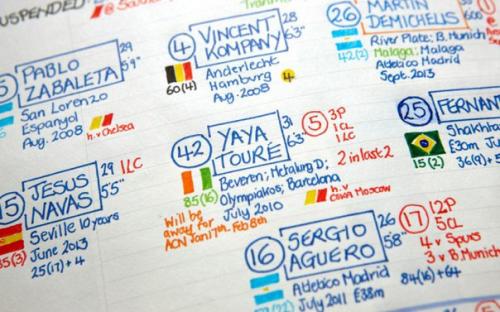 SUSPENDED
PABLO
ZABALETA
29
5'9"
San Lorenzo
Espanyol
Aug. 2008
h.v Chelsea
4
VINCENT
KOMPANY
28
6'3"
60(4)
Anderlecht
Hamburg
Aug. 2008
4
26
MARTIN
DEMICHELIS
River Plate; B. Munich
Malaga; Malaga
42(2)
Atletico Madrid
Sept. 2013
42
YAYA
TOURE
31
6'3"
5
3P
1CL
1LC
2 in last 2
85(16)
Beveren; Metalurg D;
Olympiakos; Barcelona
July 2010
h.v
CSKA Moscow
Will be
away for
ACN Jan 17th Feb 8th
25
FERNAN
Shakhta
£30m Ju
15(2)
36(9)+5
JESUS
NAVAS
29
5'5"
1LC
Seville 10 years
June 2013
25(17)+4
16
SERGIO
AGUERO
26
5'8"
17
12P
5CL
4 v Spurs
3 v B.Munich
Atletico Madrid
July 2011 £38m
84(16)+64